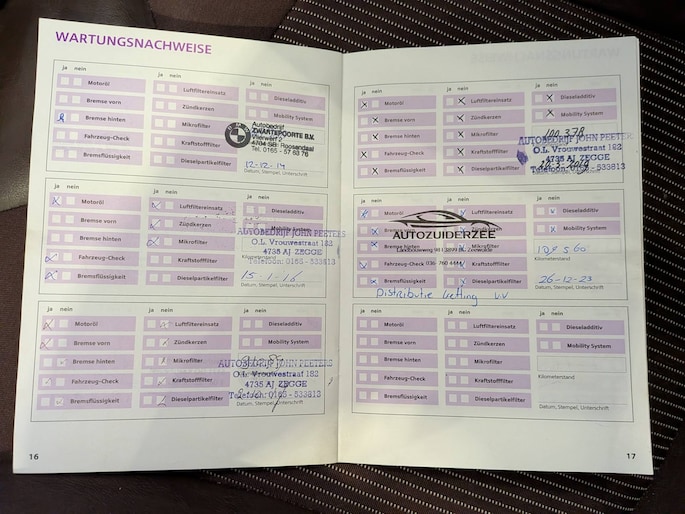 WARTUNGSNACHWEISE
ja nein
Motoröl
Bremse vorn
Bremse hinten
Fahrzeug-Check
Bremsflüssigkeit
ja nein
Luftfiltereinsatz
Zündkerzen
Mikrofilter
Kraftstofffilter
Dieselpartikelfilter
ja nein
Dieseladditiv
Mobility System
Autobedrijf
ZWARTEPOORTE B.V.
Vierwerf 2
4704 SB Roosendaal
Tel. 0165 - 57 83 76
12-12-14
Datum, Stempel, Unterschrift
ja nein
Motoröl
Bremse vorn
Bremse hinten
Fahrzeug-Check
Bremsflüssigkeit
ja nein
Luftfiltereinsatz
Zündkerzen
Mikrofilter
Kraftstofffilter
Dieselpartikelfilter
ja nein
Dieseladditiv
Mobility System
AUTOBEDRIJF JOHN PEETERS
O.L. Vrouwestraat 183
4735 AJ ZEGGE
Telefoon: 0165 - 533813
Kilometerstand
15-1-16
Datum, Stempel, Unterschrift
ja nein
Motoröl
Bremse vorn
Bremse hinten
Fahrzeug-Check
Bremsflüssigkeit
ja nein
Luftfiltereinsatz
Zündkerzen
Mikrofilter
Kraftstofffilter
Dieselpartikelfilter
ja nein
Dieseladditiv
Mobility System
AUTOBEDRIJF JOHN PEETERS
O.L. Vrouwestraat 183
4735 AJ ZEGGE
Telefoon: 0165 - 533813
Datum, Stempel, Unterschrift
16
ja nein
Motoröl
Bremse vorn
Bremse hinten
Fahrzeug-Check
Bremsflüssigkeit
ja nein
Luftfiltereinsatz
Zündkerzen
Mikrofilter
Kraftstofffilter
Dieselpartikelfilter
ja nein
Dieseladditiv
Mobility System
100.378
AUTOBEDRIJF JOHN PEETER
O.L. Vrouwestraat 183
4735 AJ ZEGGE
Telefoon: 0165 - 533813
Datum, Stempel, Unterschrift
ja nein
Motoröl
Bremse vorn
Bremse hinten
Fahrzeug-Check
Bremsflüssigkeit
ja nein
Luftfiltereinsatz
Zündkerzen
Mikrofilter
Kraftstofffilter
Dieselpartikelfilter
ja nein
Dieseladditiv
Mobility System
AUTOZUIDERZEE
036-760 4444
109560
Kilometerstand
26-12-23
Datum, Stempel, Unterschrift
Distributie ketting V.V
ja nein
Motoröl
Bremse vorn
Bremse hinten
Fahrzeug-Check
Bremsflüssigkeit
ja nein
Luftfiltereinsatz
Zündkerzen
Mikrofilter
Kraftstofffilter
Dieselpartikelfilter
ja nein
Dieseladditiv
Mobility System
Kilometerstand
Datum, Stempel, Unterschrift
17